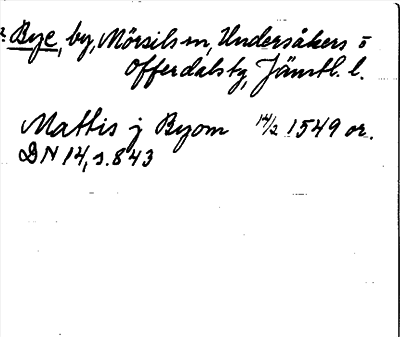 ?. Bye, by, Mörsils sn, Undersåkers o
Offerdals tg, Jämtl. l.
Mattis j Byom 14/2 1549 or.
DN 14, s. 843